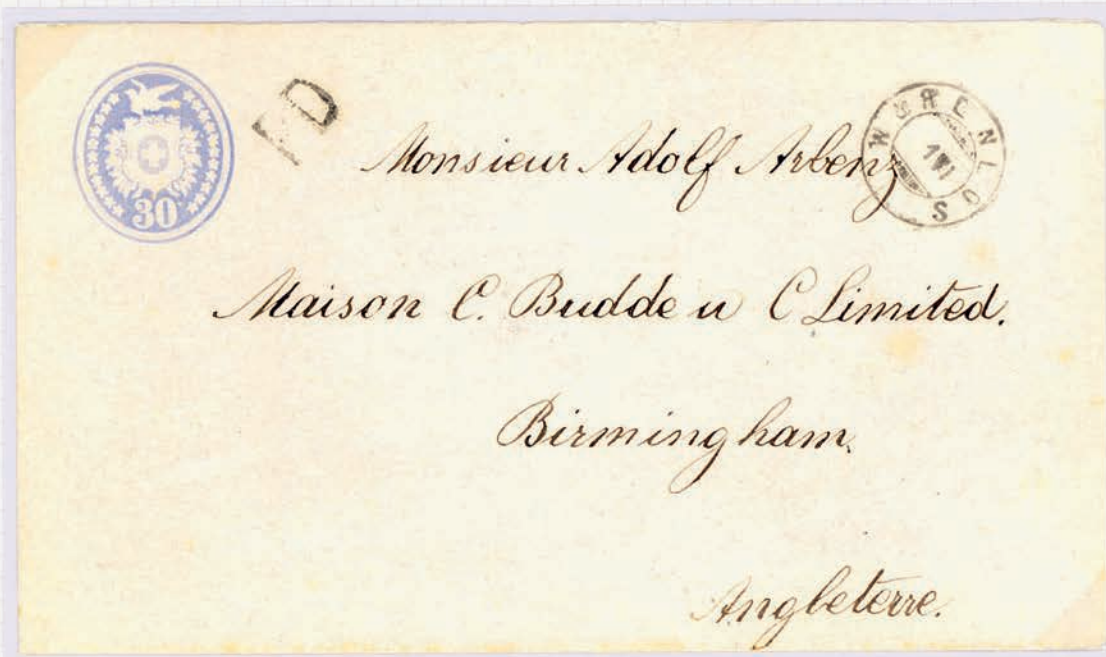 30
PD
WÜRENLOS
1 VI
Monsieur Adolf Arbenz
Maison C. Budde u C Limited.
Birmingham.
Angleterre.